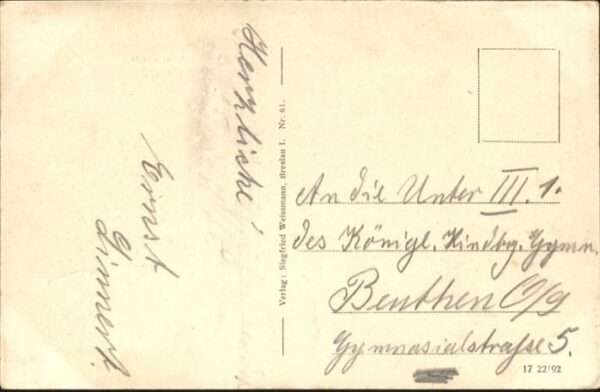 Herzliche
Ernst
Linnert.
Verlag: Siegfried Weissmann, Breslau I. Nr. 61.
An die Unter III. 1.
des Königl. Hindbg. Gymn.
Beuthen O/S
Gymnasialstraße 5.
17 22192